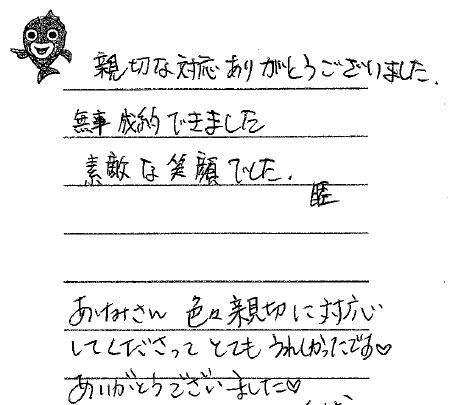 親切な対応ありがとうございました.
無事成約できました
素敵な笑顔でした.
あゆみさん 色々親切に対応
してくださって とても うれしかったです♡
ありがとうございました♡